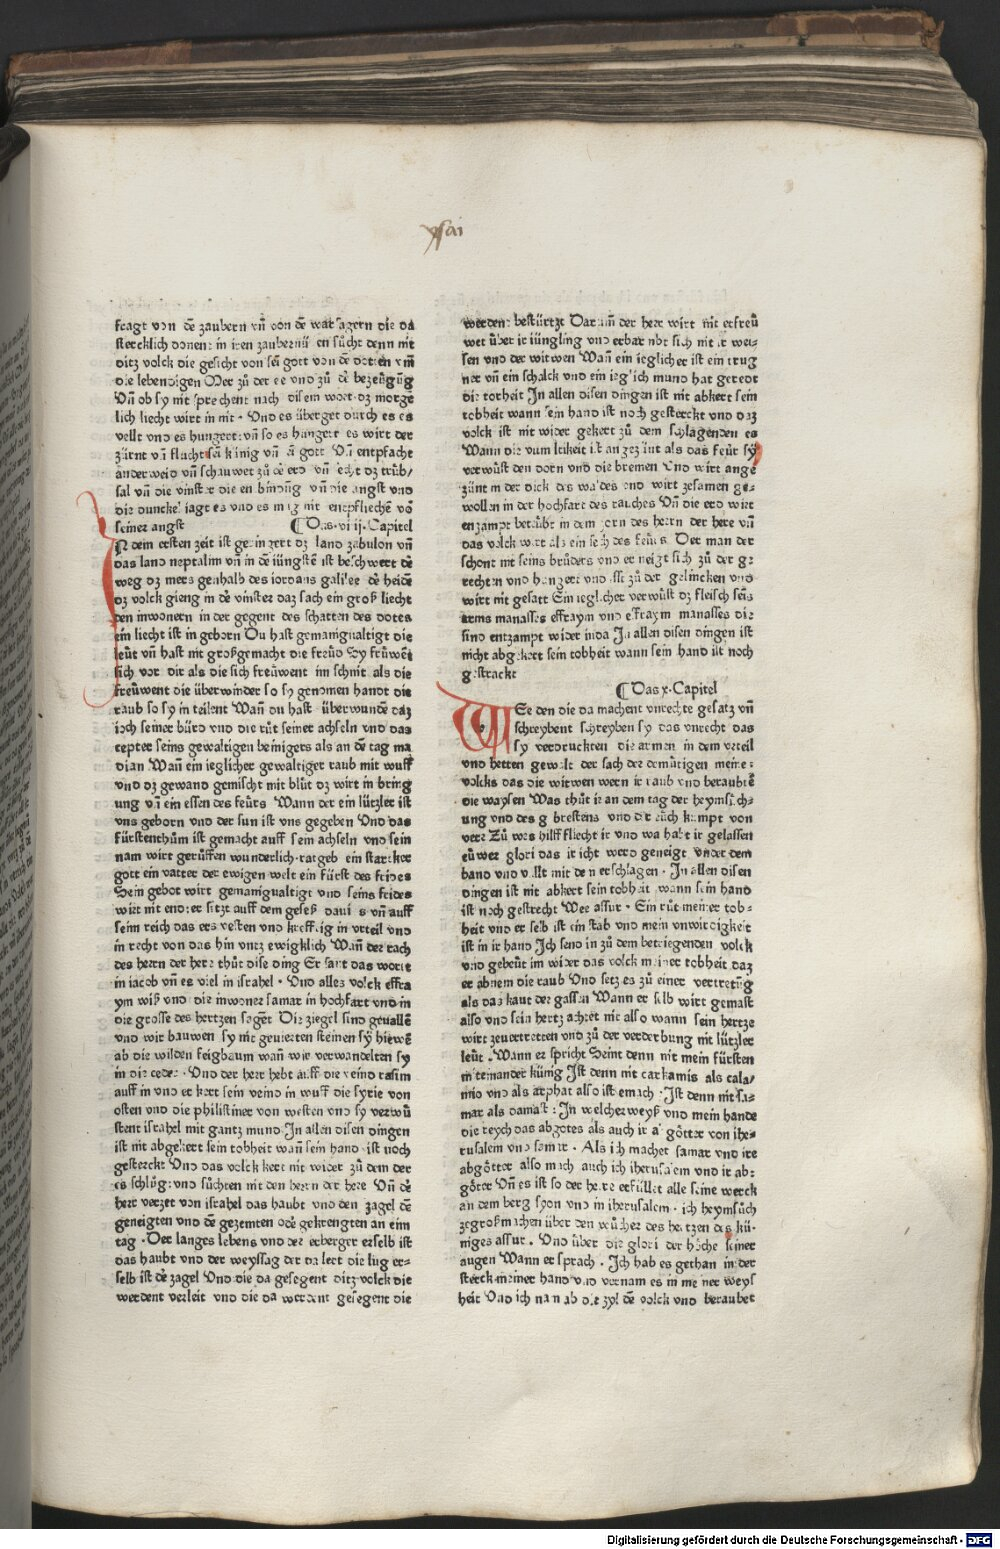 ysai
fragt von dẽ zaubern vñ von dẽ warsagern die da
stercklich donent in iren zaubernü en sůcht denn nit
ditz volck die gesicht von sẽi gott von dẽ dotten vm̃
die lebendigen Mer zů der ee vnd zů dẽ bezeügũg
Vñ ob sy nit sprechent nach disem wort dz morgẽ
lich liecht wirt in nit · Vnd es überget durch es es
vellt vnd es hungert vñ so es hungert es wirt der
zürnt vñ flucht sẽi künig vñ sẽi gott Vñ entpfacht
anderweid vñ schauwet zů dẽ erd vñ secht dz trüb/
sal vñ die vinster die en bindũg vñ die angst vnd
die dunckel iagt es vnd es mag nit entpfliechẽ võ
seiner angst ¶ Das · viiij · Capitel
IN dem ersten zeit ist geringert dz land zabulon vñ
das land neptalim vñ in dẽ iüngstẽ ist beschwert dẽ
weg dz mers genhalb des iordans galilee dẽ heidẽ
dz volck gieng in dẽ vinster daz sach ein groß liecht
den inwonern in der gegent des schatten des dotes
ein liecht ist in geborn Du hast gemanigualtigt die
leüt vñ hast nit großgemacht die freüd Sy früwẽt
sich vor dir als die sich freüwent im schnit als die
freüwent die überwinder so sy genomen handt die
raub so sy in teilent Wañ du hast überwundẽ daz
ioch seiner bürd vnd die rüt seiner achseln vnd das
cepter seins gewaltigen beinigers als an dẽ tag ma
dian Wañ ein ieglicher gewaltiger raub mit wuff
vnd dz gewand gemischt mit blüt dz wirt in bring
ung vñ ein essen des feürs Wann der ein lützler ist
vns geborn vnd der sun ist vns gegeben Vnd das
fürstenthům ist gemacht auff sein achseln vnd sein
nam wirt gerüffen wunderlich ratgeb ein starcker
gott ein vatter der ewigen welt ein fürst des frides
Sein gebot wirt gemanigualtigt vnd seins frides
wirt nit end er sitzt auff dem geseß dauids vñ auff
seim reich das ers vesten vnd krefftig in vrteil vnd
in recht von das hin vntz ewigklich Wañ der rach
des herrn der here thůt dise ding Er sant das wort
in iacob vñ es viel in israhel · Vnd alles volck effra
ym wiß vnd die inwoner samar in hochfart vnd in
die grosse des hertzen sagẽt Die ziegel sind geuallẽ
vnd wir bauwen sy mit geuierten steinen sy hiewẽ
ab die wilden feigbaum wañ wir verwandelten sy
in die ceder · Vnd der herr hebt auff die veind rasim
auff in vnd er kert sein veind in wuff die syrie von
osten vnd die philistiner von westen vnd sy verwů
stent israhel mit gantz mund In allen disen dingen
ist nit abgekert sein tobheit wañ sein hand ist noch
gesterckt Vnd das volck kert nit wider zů dem der
es schlůg vnd sůchten nit den herrn der here Vñ dẽ
herr verzet von israhel das haubt vnd den zagel dẽ
geneigten vnd dẽ gezemten odẽ gekrengten an eim
tag · Der langes lebens vnd der erberger er selb ist
das haubt vnd der weyssag der da lert die lug er
selb ist dẽ zagel Vnd die da gesegent ditz volck die
werdent verleit vnd die da werdent gesegent die
werdent bestürtzt Darum der herr wirt nit erfreü
wet über ir iüngling vnd erbarmbt sich nit ir wei-
sen vnd der witwen Wañ ein ieglicher ist ein trug
ner vñ ein schalck vnd ein ieglich mund hat geredt
die torheit In allen disen dingen ist nit abkert sein
tobheit wann sein hand ist noch gesterckt vnd daz
volck ist nit wider gekert zů dem schlagenden es
Wann die vumiltikeit ist angezünt als das feür sy
verwüst den dorn vnd die bremen Vnd wirt ange
zünt in der dick des waldes vnd wirt zesamen ge-
wollen in der hochfart des rauches Vñ die erd wirt
entzampt betrübt in dem zorn des herrn der here vñ
das volck wirt als ein sech des feürs Der man der
schont nit seins brůders vnd er neigt sich zů der ge
rechten vnd hungert vnd isst zů der gelincken vnd
wirt nit gesatt Ein ieglicher verwüst dz fleisch sẽis
arms manasses effraym vnd effraym manasses die
sind entzampt wider iuda In allen disen dingen ist
nicht abgekert sein tobheit wann sein hand ist noch
gestrackt
¶ Das · x · Capitel
WEe den die da machent vnrechte gesatz vñ
schreybent schreyben sy das vnrecht das
sy verdruckten die armen in dem vrteil
vnd hetten gewalt der sach der demütigen meines
volcks das die witwen wern ir raub vnd beraubtẽ
die waysen Was thůt ir an dem tag der heymsůch-
ung vnd des gebrestens vnd der zůch kumpt von
verr Zů wes hilff fliecht ir vnd wa habt ir gelassen
eüwer glori das ir icht werd geneigt vnder dem
band vnd vallt mit den erschlagen · In allen disen
dingen ist nit abkert sein tobheit wann sein hand
ist noch gestrecht Wee assur · Ein růt meiner tob-
heit vnd er selb ist ein stab vnd mein vnwirdigkeit
ist in ir hand Ich send in zů dem betriegenden volck
vnd gebeüt im wider das volck meiner tobheit daz
er abnem die raub Vnd setz es zů einer vertretũg
als das kaut der gassen Wann er selb wirt gemast
also vnd sein hertz achtet nit also wann sein hertze
wirt zeuertretten vnd zů der verderbung nit lützler
leüt · Wann er spricht Seint denn nit mein fürsten
miteinander künig Ist denn nit carkamis als cala/
mio vnd als arphat also ist emach · Ist denn nit sa-
mar als damast : In welcher weyß vnd mein hande
die reych das abgotes als auch ir abgötter von ihe-
rusalem vnd samar · Als ich machet samar vnd ire
abgötter also mach auch ich iherusalem vnd ir ab-
götter Vñ es ist so der herre erfüllet alle seine werck
an dem berg syon vnd in iherusalem · ich heymsůch
ze großmachen über den wůcher des hertzen des kü-
niges assur · Vnd über die glori der höche seiner
augen Wann er sprach · Ich hab es gethan in der
sterck meiner hand vnd vernam es in meiner weys
heit Vnd ich nam ab die zyl dẽ volck vnd beraubet
Digitalisierung gefördert durch die Deutsche Forschungsgemeinschaft - DFG